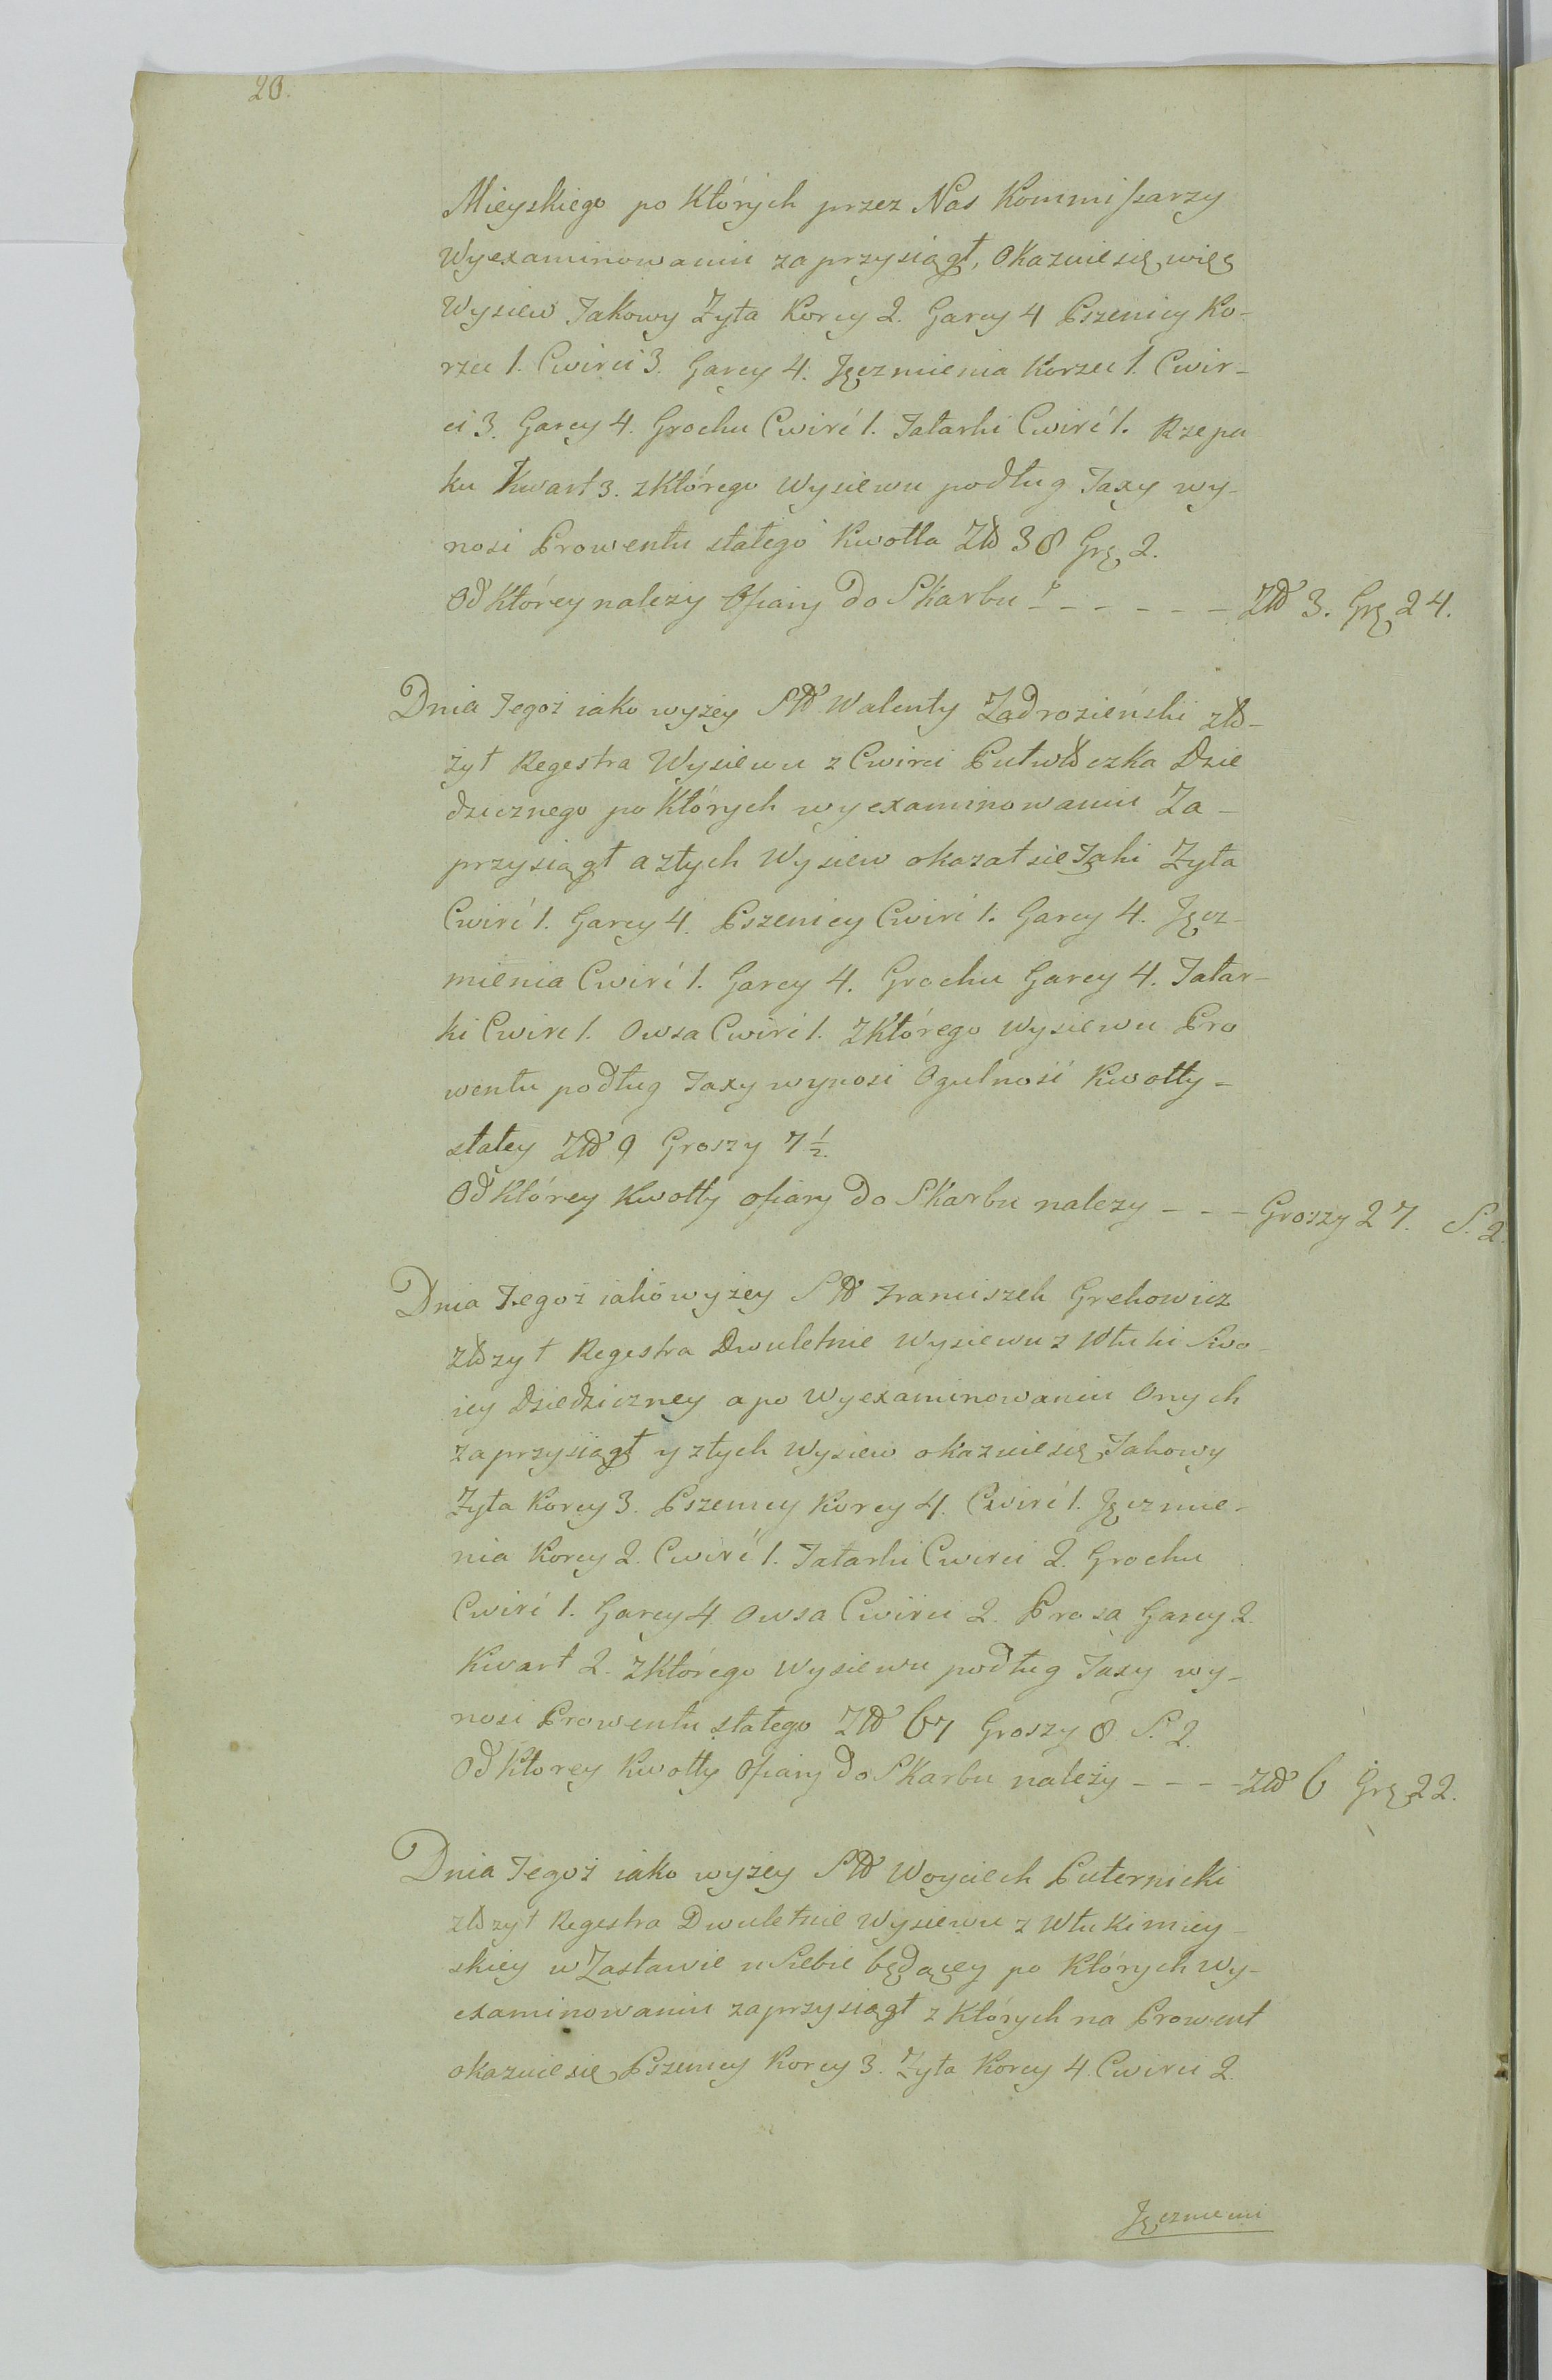 20.
Mieyskiego po Których przez Nas Kommissarzy
Wyexaminowaniu zaprzysiągł, Okazuie się więc
Wysiew Takowy Zyta Korcy 2. Garcy 4 Pszenicy Ko-
rzec 1. Cwirci 3. Garcy 4. Jęczmienia Korzec 1. Cwir-
ci 3. Garcy 4. Grochu Cwirć 1. Tatarki Cwirć 1. Rzepa
ku Kwart 3. z Którego Wysiewu podług Taxy wy-
nosi Prowentu stałego Kwotta Zło 38 Grz 2.
Od Którey nalezy Ofiary do Skarbu - - - - - - Zło 3. Grz 24.
Dnia Tegoż iako wyżey Sł. Walenty Zadrozieński zło-
żył Regestra Wysiewu z Cwirci Pułwłoczka Dzie
dzicznego po Których wyexaminowaniu Za-
przysiągł a z tych Wysiew okazał się Taki Zyta
Cwirć 1. Garcy 4. Pszenicy Cwirć 1. Garcy 4. Jęcz-
mienia Cwirć 1. Garcy 4. Grochu Garcy 4. Tatar-
ki Cwirć 1. Owsa Cwirć 1. Z Którego Wysiewu Pro
wentu podług Taxy wynosi Ogulność Kwotty-
stałey Zło 9 Groszy 7 1/2.
Od Którey Kwotty ofiary do Skarbu nalezy - - - Groszy 27. S. 2.
Dnia Tegoż iako wyżey Sł. Franciszek Grekowicz
złozył Regestra Dwuletnie Wysiewu z Włuki Swo-
iey Dziedziczney a po Wyexaminowaniu Onych
zaprzysiągł y z tych Wysiew okazuie się Takowy
Zyta Korcy 3. Pszenicy Korcy 4. Cwirć 1. Jęczmie-
nia Korcy 2. Cwirć 1. Tatarki Cwirci 2. Grochu
Cwirć 1. Garcy 4 Owsa Cwirci 2. Prosa Garcy 2.
Kwart 2. z Którego Wysiewu podług Taxy wy-
nosi Prowentu stałego Zło 67 Groszy 8 S. 2.
Od Którey Kwotty Ofiary do Skarbu należy - - - - Zło 6 Grz 22.
Dnia Tegoż iako wyżey Sł. Woyciech Puternicki
złozył Regestra Dwuletnie Wysiewu z Włuki miey-
skiey w Zastawie u Siebie będącey po Których Wy-
examinowaniu zaprzysiągł z Których na Prowent
okazuie się Pszenicy Korcy 3. Zyta Korcy 4. Cwirci 2.
Jęczmieni